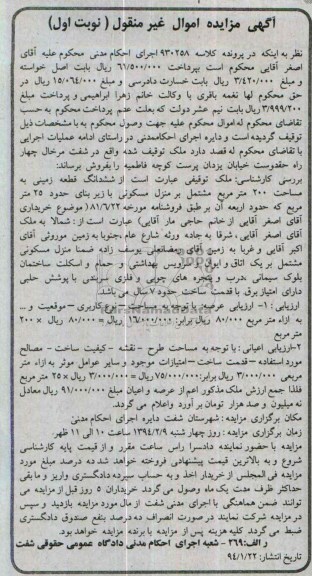 آگهی مزایده اموال غیر منقول ( نوبت اول )
نظر به اینکه در پرونده کلاسه ۹۳۰۲۵۸ اجرای احکام مدنی محکوم علیه آقای
اصغر آقایی محکوم است بپرداخت ۶۱/۵۰۰/۰۰۰ ریال بابت اصل خواسته
و مبلغ ۳/۴۲۰/۰۰۰ ریال بابت خسارت دادرسی و مبلغ ۱۵/۰۶۴/۰۰۰ ریال در
حق محکوم لها نغمه باقری با وکالت خانم زهرا ابراهیمی و پرداخت مبلغ
۳/۹۹۹/۲۰۰ ریال بابت نیم عشر دولت که بعلت عدم پرداخت محکوم به حسب
تقاضای محکوم له اموال محکوم علیه جهت وصول محکوم به با مشخصات ذیل
توقیف گردیده است و دایره اجرای احکام مدنی در راستای ادامه عملیات اجرایی
با تقاضای محکوم له قصد دارد ملک توقیف شده واقع در شفت مرخال چهار
راه حقدوست خیابان یزدان پرست کوچه فاطمیه را بفروش برساند:
بررسی کارشناسی: ملک توقیفی عبارت است از ششدانگ قطعه زمینی به
مساحت ۲۰۰ متر مربع مشتمل بر منزل مسکونی با زیر بنای حدود ۲۵ متر
مربع که حدود اربعه آن بر طبق فروشنامه مورخه ۸۱/۶/۲۲ (موضوع خریداری
آقای اصغر آقایی از خانم حاجر ماز آقایی) عبارت است از: شمالا به ملک
آقای اصغر آقایی، شرقا به جاده ورثه شارع عام، جنوبا به زمین موروثی آقای
اکبر آقایی و غربا به زمین آقای رمضانعلی یوسف زاده ضمنا منزل مسکونی
مشتمل بر یک اتاق و ایوان سرویس بهداشتی و حمام و اسکلت ساختمان
بلوک سیمانی ،درب و پنجره های چوبی و فلزی سربندی با پوشش حلبی
دارای امتیاز برق با قدمت ساخت حدود ۷ سال می باشد.
ارزیابی : ۱- ارزیابی عرصه: با توجه به مساحت – نوع کاربری – موقعیت و ...
به ازاء متر مربع ۸۰/۰۰۰ ریال برابر: ۱۶/۰۰۰/۰۰۰ ریال = ۸۰/۰۰۰ ریال × ۲۰۰
متر مربع
۲-ارزیابی اعیانی : با توجه به مساحت طرح – نقشه – کیفیت ساخت – مصالح
مورد استفاده – قدمت ساخت – امتیازات موجود و سایر عوامل موثر به ازاء متر
مربعی ۳/۰۰۰/۰۰۰ ریال برابر: ۷۵/۰۰۰/۰۰۰ ریال = ۳/۰۰۰/۰۰۰ ریال × ۲۵ متر مربع
فلذا جمع ارزش ملک مذکور اعم از عرصه و اعیان مبلغ ۹۱/۰۰۰/۰۰۰ ریال معادل
نه میلیون و صد هزار تومان بر آورد و اعلام می گردد.
مکان برگزاری مزایده : شهرستان شفت دایره اجرای احکام مدنی
زمان برگزاری مزایده : روز چهار شنبه ۱۳۹۴/۲/۹ ساعت ۱۰ الی ۱۱ ظهر
مزایده با حضور نماینده دادسرا راس ساعت مقرر و از قیمت پایه کارشناسی
شروع و به بالاترین قیمت پیشنهادی فروخته خواهد شد ده درصد مبلغ مورد
مزایده فی المجلس از خریدار اخذ و به حساب سپرده دادگستری واریز و ما بقی
حداکثر ظرف مدت یک ماه وصول می گردد خریداران ۵ روز قبل از مزایده می
توانند ضمن هماهنگی با اجرای مدنی شفت از مال مورد مزایده بازدید و سپس
در مزایده شرکت نمایند در صورت انصراف ده درصد بنفع صندوق دادگستری
ضبط می گردد کلیه هزینه پس از مزایده با برنده مزایده خواهد بود.
و الف: ۳۶۹ - شعبه اجرای احکام مدنی دادگاه عمومی حقوقی شفت
تاریخ انتشار: ۹۴/۱/۲۲